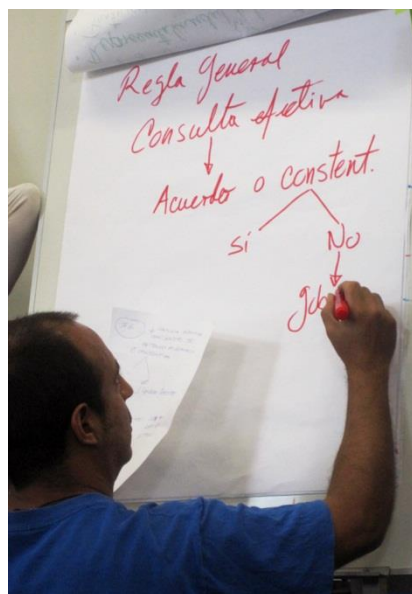 Regla general
Consulta efectiva
Acuerdo o constent.
Sí No
gob